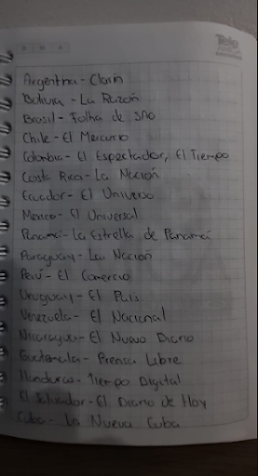 Argentina - Clarín
Bolivia - La Razón
Brasil - Folha de
Chile - El Mercurio
Colombia - El Espectador, El Tiempo
Costa Rica - La Nación
Ecuador - El Universo
México - El Universal
Panamá - La Estrella de Panamá
Paraguay - La Nación
Perú - El Comercio
Uruguay - El País
Venezuela - El Nacional
Nicaragua - El Nuevo Diario
Guatemala - Prensa Libre
Honduras - Tiempo Digital
El Salvador - El Diario de Hoy
Cuba - La Nueva Cuba